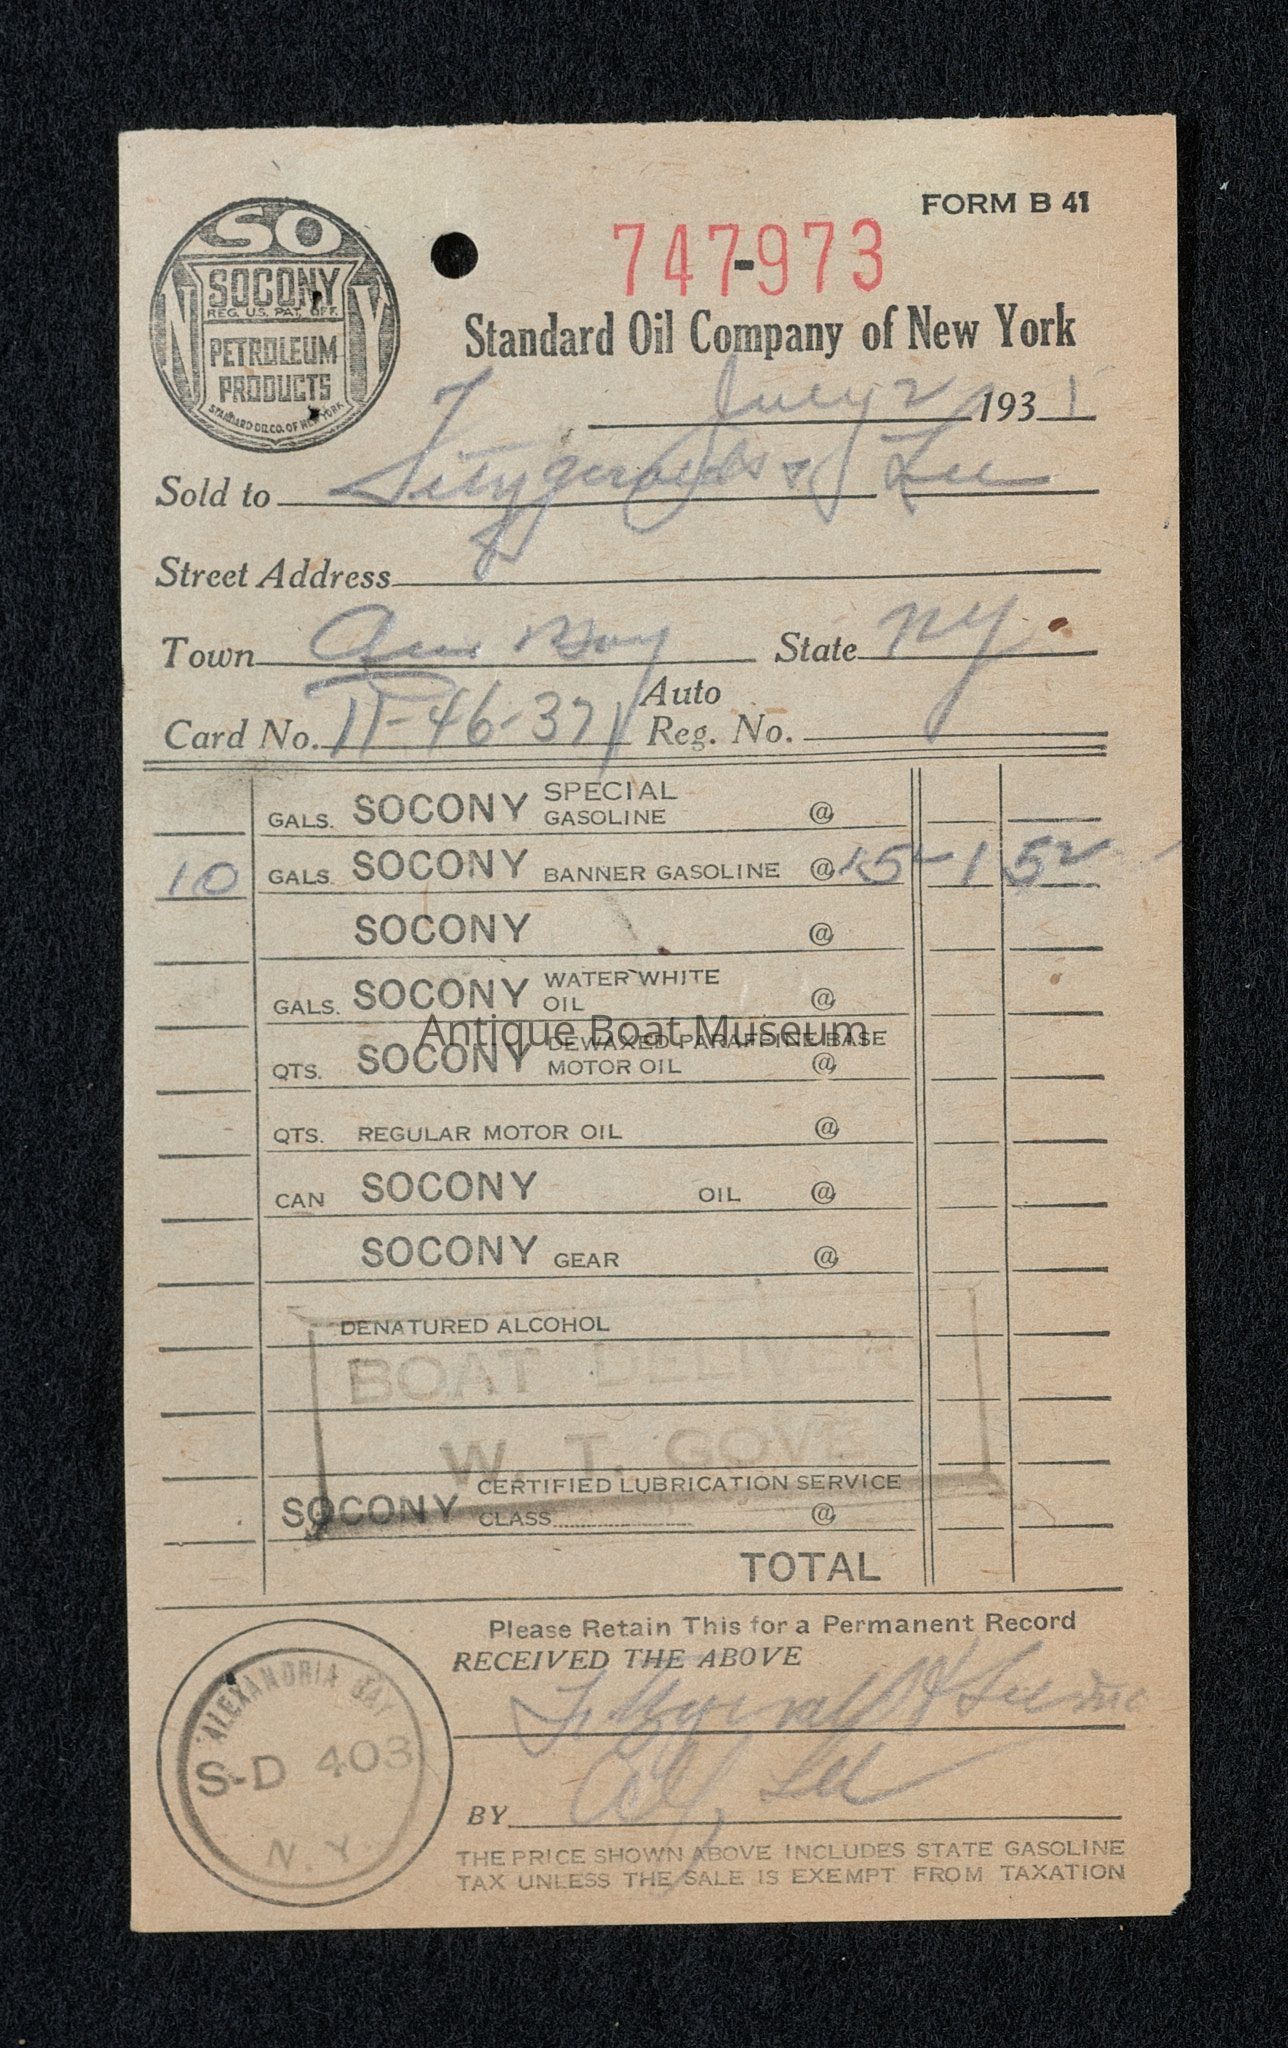 FORM B 41
SO
N Y
SOCONY
REG. U.S. PAT. OFF.
PETROLEUM
PRODUCTS
STANDARD OIL CO. OF NEW YORK
747-973
Standard Oil Company of New York
July 2 1931
Sold to Fitzgeralds & Lee
Street Address
Town Bay State NY.
Card No. 11-46-371 Auto Reg. No.
GALS. SOCONY SPECIAL GASOLINE @
10 GALS. SOCONY BANNER GASOLINE @ 15 2 1 52
SOCONY @
GALS. SOCONY WATER WHITE OIL @
Antique Boat Museum
QTS. SOCONY DEWAXED PARAFFINE BASE MOTOR OIL @
QTS. REGULAR MOTOR OIL @
CAN SOCONY OIL @
SOCONY GEAR @
DENATURED ALCOHOL
BOAT DELIVER
W. T. GOVE
SOCONY CERTIFIED LUBRICATION SERVICE CLASS @
TOTAL
Please Retain This for a Permanent Record
RECEIVED THE ABOVE
Fitzgerald & Lee Inc
BY Lee
ALEXANDRIA BAY
S-D 403
N.Y.
THE PRICE SHOWN ABOVE INCLUDES STATE GASOLINE
TAX UNLESS THE SALE IS EXEMPT FROM TAXATION